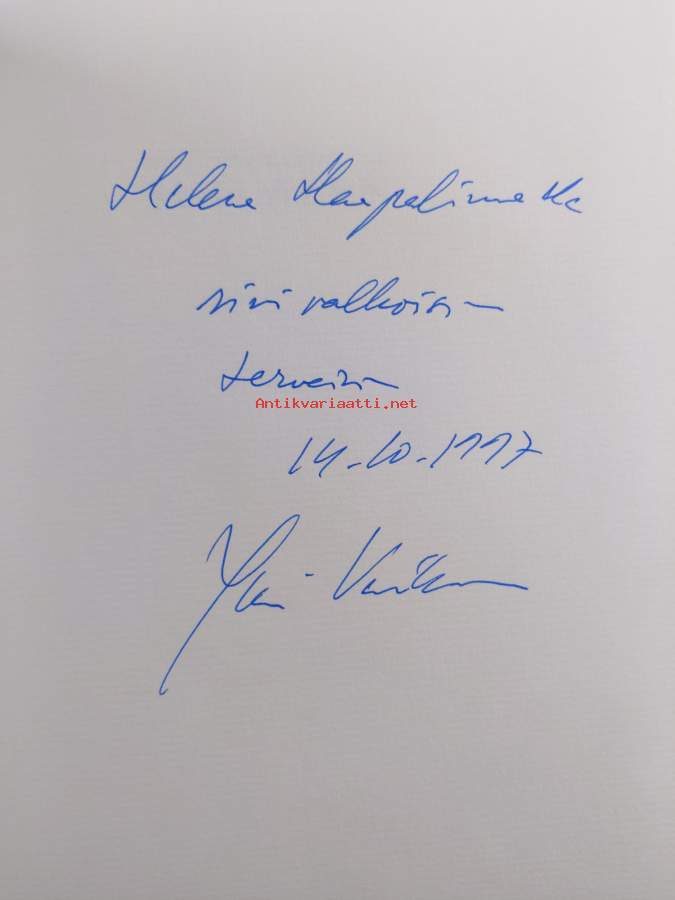 Helena Haapalinnalle
sinivalkoisin
terveisin
Antikvariaatti.net
14.10.1997